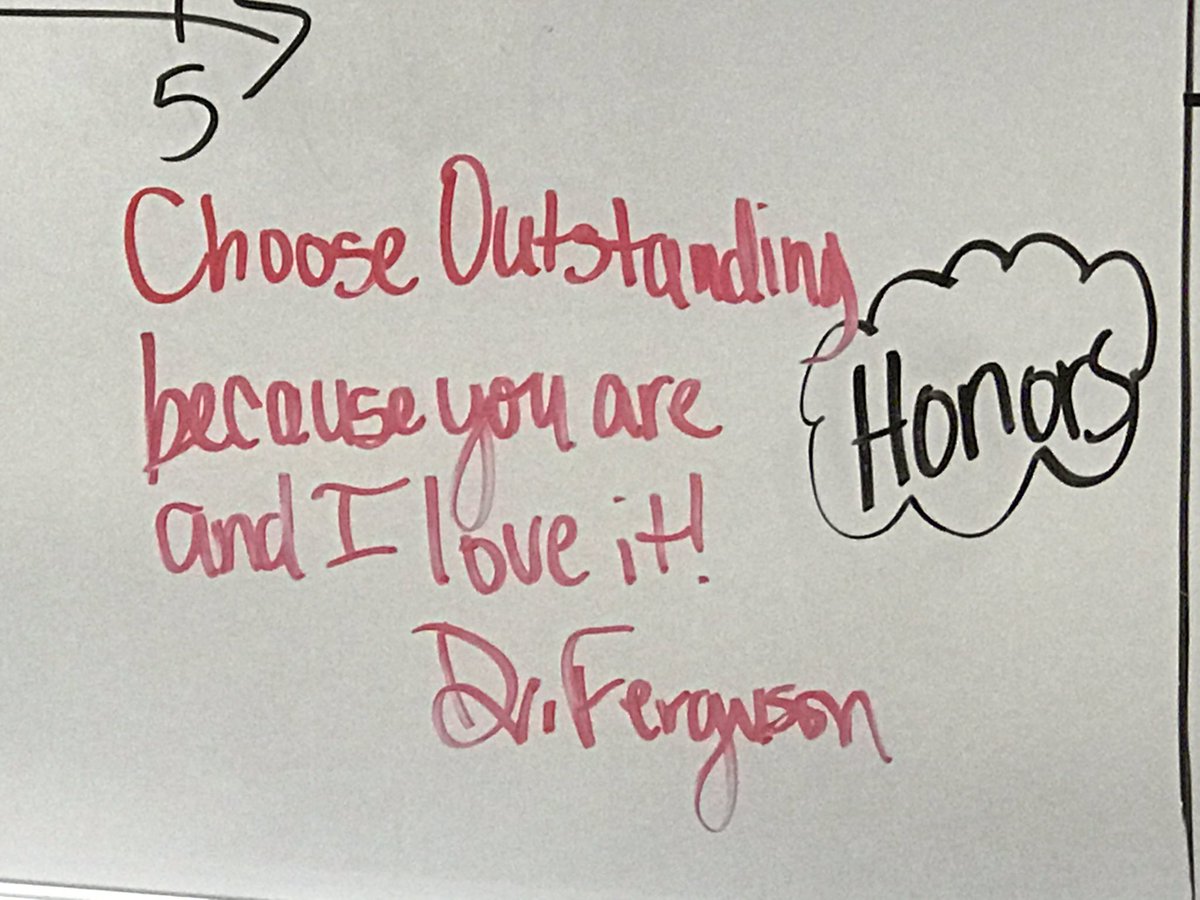 5
Choose Outstanding
because you are
and I love it!
Dr. Ferguson
Honors